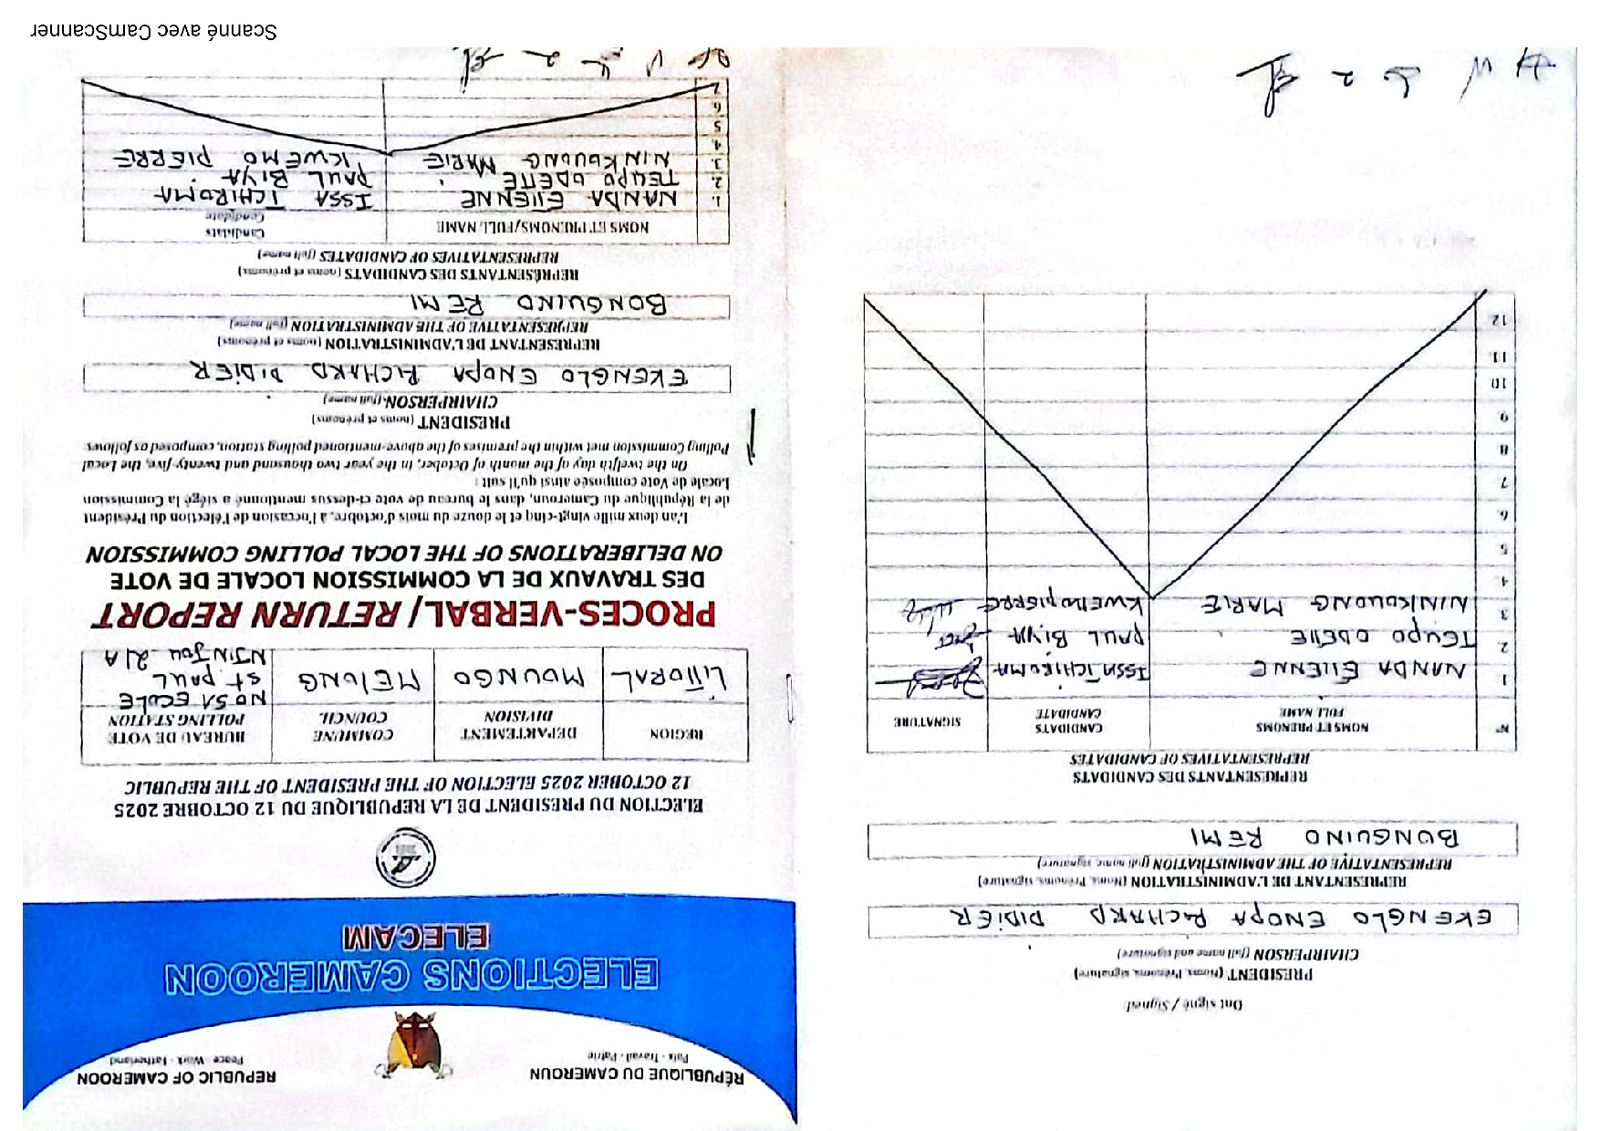 RÉPUBLIQUE DU CAMEROUN
Paix - Travail - Patrie
REPUBLIC OF CAMEROON
Peace - Work - Fatherland
ELECTIONS CAMEROON
ELECAM
ELECTION DU PRESIDENT DE LA REPUBLIQUE DU 12 OCTOBRE 2025
12 OCTOBER 2025 ELECTION OF THE PRESIDENT OF THE REPUBLIC
REGION
DEPARTEMENT
DIVISION
COMMUNE
COUNCIL
BUREAU DE VOTE
POLLING STATION
LITTORAL
MOUNGO
MELONG
ECOLE
ST PAUL
NJINJOU 21A
PROCES-VERBAL / RETURN REPORT
DES TRAVAUX DE LA COMMISSION LOCALE DE VOTE
ON DELIBERATIONS OF THE LOCAL POLLING COMMISSION
L'an deux mille vingt-cinq et le douze du mois d'octobre, à l'occasion de l'élection du Président
de la République du Cameroun, dans le bureau de vote ci-dessus mentionné a siégé la Commission
Locale de Vote composée ainsi qu'il suit :
On the twelfth day of the month of October, in the year two thousand and twenty-five, the Local
Polling Commission met within the premises of the above-mentioned polling station, composed as follows:
PRESIDENT (noms et prénoms)
CHAIRPERSON (full name)
EKENGLO ENOPA RICHARD DIDIER
REPRESENTANT DE L'ADMINISTRATION (noms et prénoms)
REPRESENTATIVE OF THE ADMINISTRATION (full name)
BONGUINO REMI
REPRÉSENTANTS DES CANDIDATS (noms et prénoms)
REPRESENTATIVES OF CANDIDATES (full name)
NOMS ET PRENOMS/FULL NAME
Candidats
Candidate
1. NANDA ETIENNE ISSA TCHIROMA
2. TEUPO ODETTE PAUL BIYA
3. NINKOUONG MARIE KWEMO PIERRE
4.
5
6.
7
Ont signé / Signed
PRESIDENT (Noms, Prénoms, signature)
CHAIRPERSON (full name and signature)
EKENGLO ENOPA RICHARD DIDIER
REPRESENTANT DE L'ADMINISTRATION (Noms, Prénoms, signature)
REPRESENTATIVE OF THE ADMINISTRATION (full name, signature)
BONGUINO REMI
REPRESENTANTS DES CANDIDATS
REPRESENTATIVES OF CANDIDATES
N°
NOMS ET PRENOMS
FULL NAME
CANDIDATS
CANDIDATE
SIGNATURE
1 NANDA ETIENNE ISSA TCHIROMA
2 TEUPO ODETTE PAUL BIYA
3 NINKOUONG MARIE KWEMO PIERRE
4
5
6
7
8
9
10
11
12
Scanné avec CamScanner